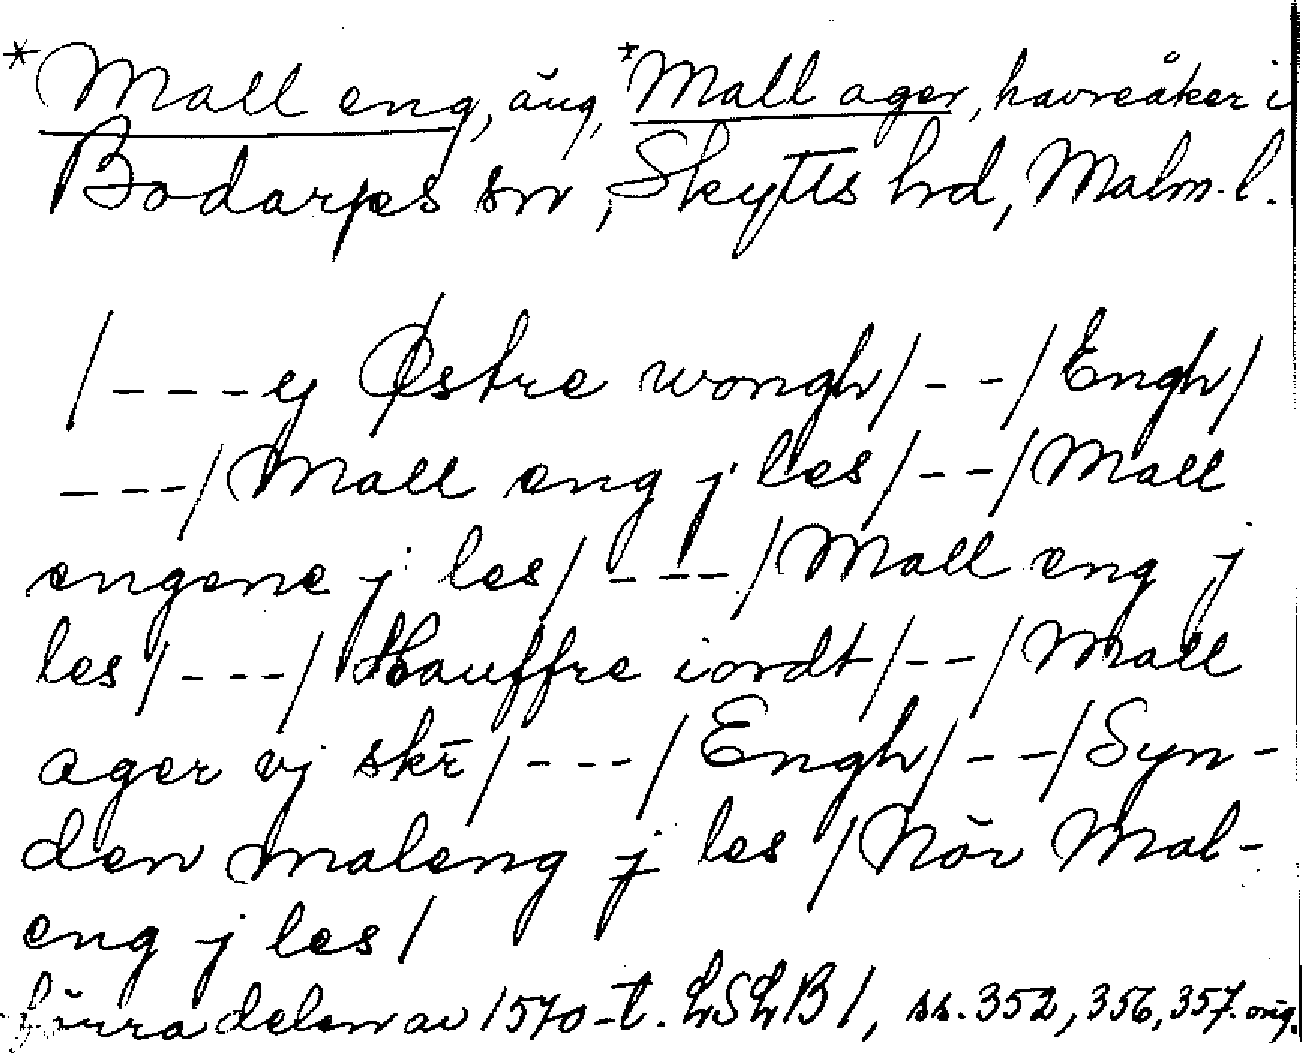 *Mall eng, äng, *Mall ager, havreåker i
Bodarps sn, Skytts hd, Malm. l.
/---ej Østre wongh/--/Engh/
---/Mall eng j les/--/Mall
engene j les/---/Mall eng j
les/---/Hauffre iordt/--/Mall
ager vj skr̄/---/Engh/--/Syn-
den maleng j les/Nör Mal-
eng j les/
förra delen av 1570-t. LSLB 1, ss. 352, 356, 357. orig.